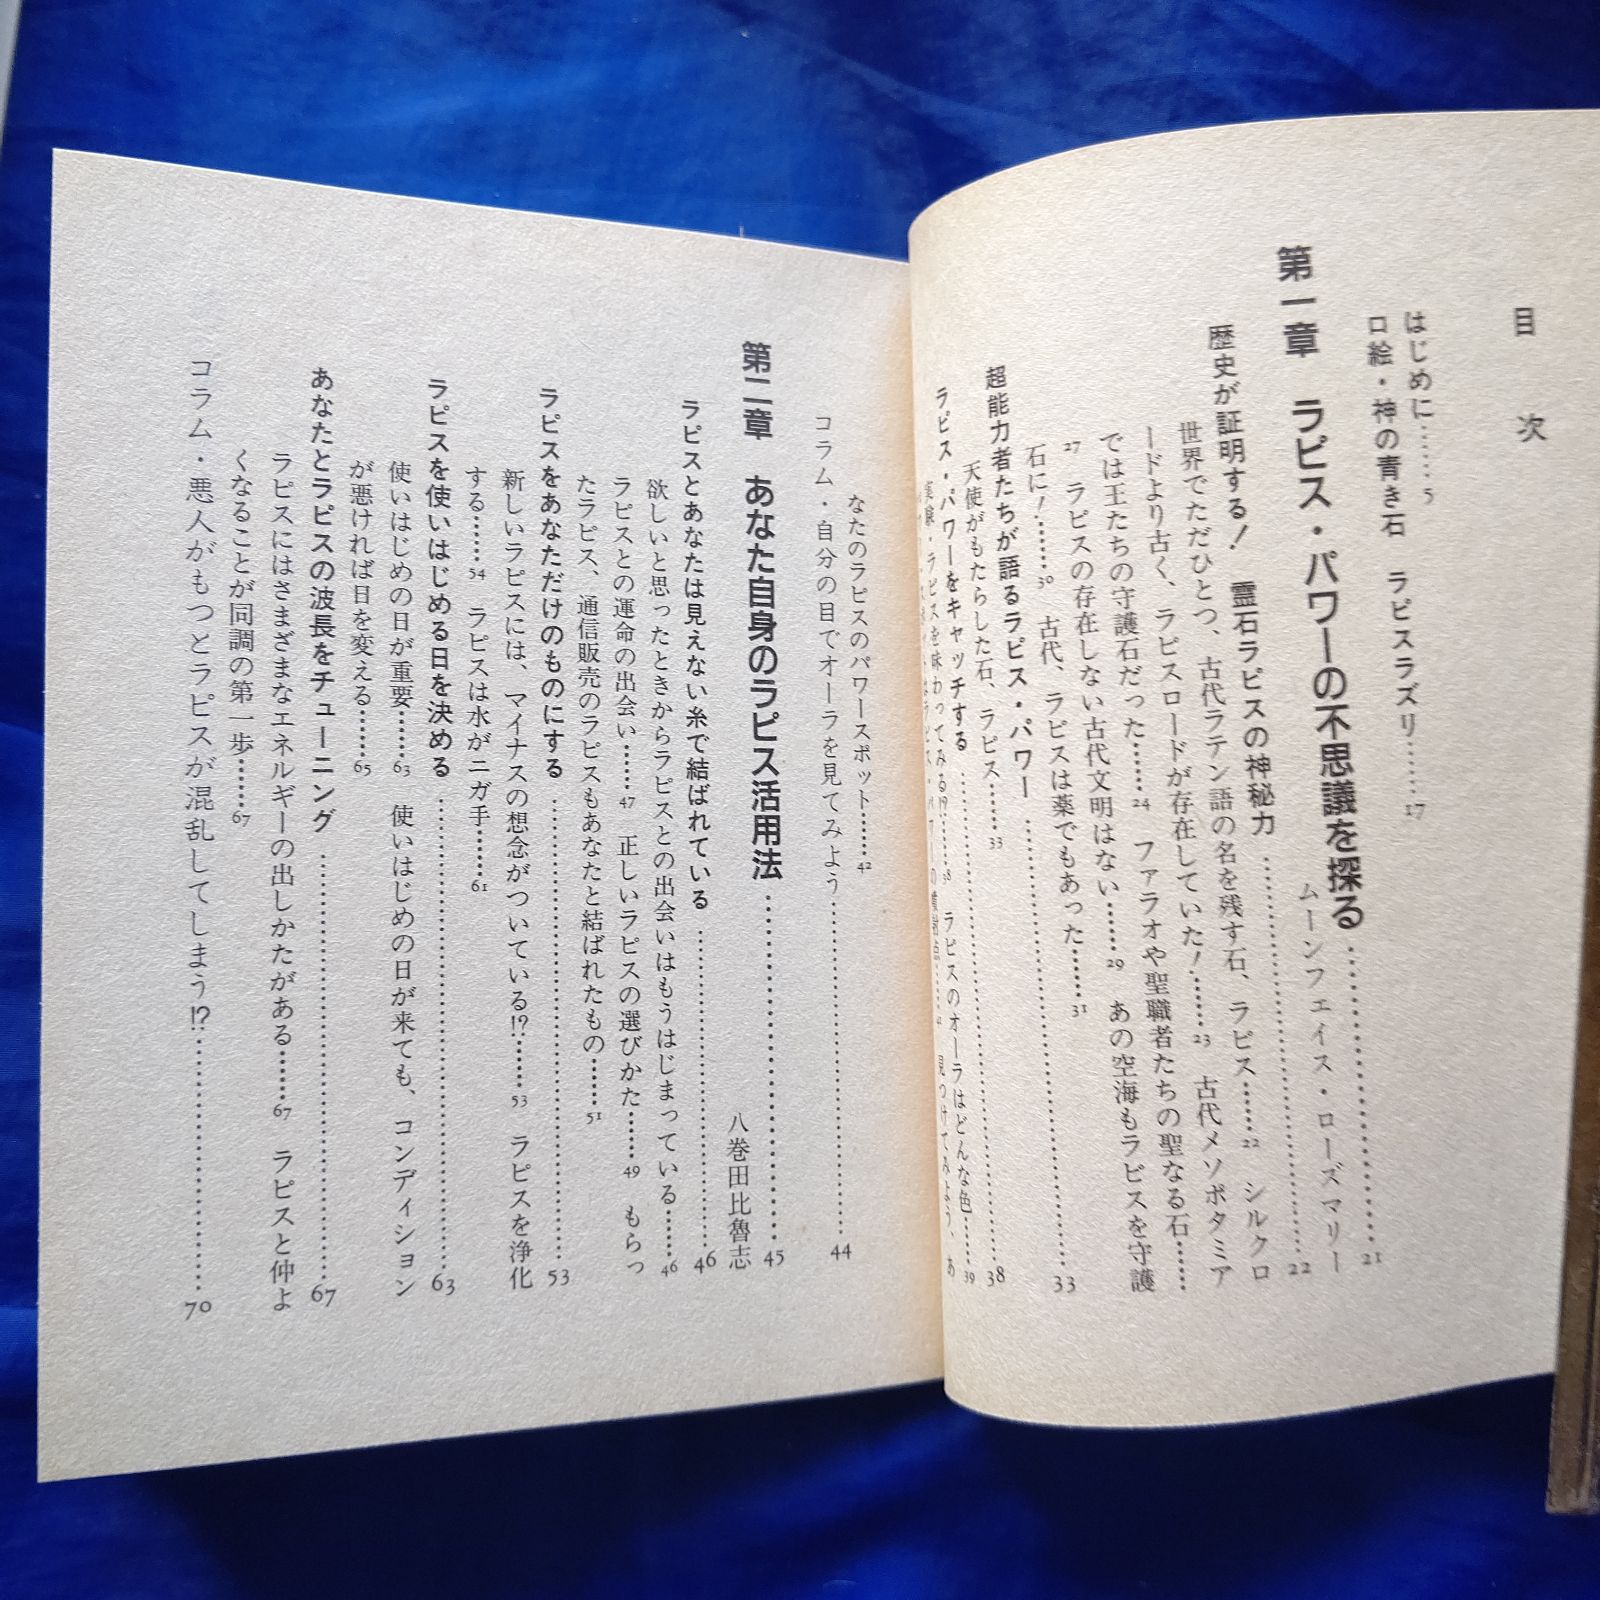 目次
はじめに……5
口絵・神の青き石　ラピスラズリ……17
第一章　ラピス・パワーの不思議を探る……21
ムーンフェイス・ローズマリー
歴史が証明する！　霊石ラピスの神秘力……22
世界でただひとつ、古代ラテン語の名を残す石、ラピス……22　シルクロ
ードより古く、ラピスロードが存在していた！……23　古代メソポタミア
では王たちの守護石だった……24　ファラオや聖職者たちの聖なる石……
27　ラピスの存在しない古代文明はない……29　あの空海もラピスを守護
石に！……30　古代、ラピスは薬でもあった……31
超能力者たちが語るラピス・パワー……33
天使がもたらした石、ラピス……33
ラピス・パワーをキャッチする……38
実験・ラピスを味わってみる!?……38　ラピスのオーラはどんな色……39
見つけてみよう、あ
なたのラピスのパワースポット……42
コラム・自分の目でオーラを見てみよう……44
第二章　あなた自身のラピス活用法……45
八巻田比魯志
ラピスとあなたは見えない糸で結ばれている……46
欲しいと思ったときからラピスとの出会いはもうはじまっている……46
ラピスとの運命の出会い……47　正しいラピスの選びかた……49　もらっ
たラピス、通信販売のラピスもあなたと結ばれたもの……51
ラピスをあなただけのものにする……53
新しいラピスには、マイナスの想念がついている!?……53　ラピスを浄化
する……54　ラピスは水がニガ手……61
ラピスを使いはじめる日を決める……63
使いはじめの日が重要……63　使いはじめの日が来ても、コンディション
が悪ければ日を変える……65
あなたとラピスの波長をチューニング……67
ラピスにはさまざまなエネルギーの出しかたがある……67　ラピスと仲よ
くなることが同調の第一歩……67
コラム・悪人がもつとラピスが混乱してしまう!?……70